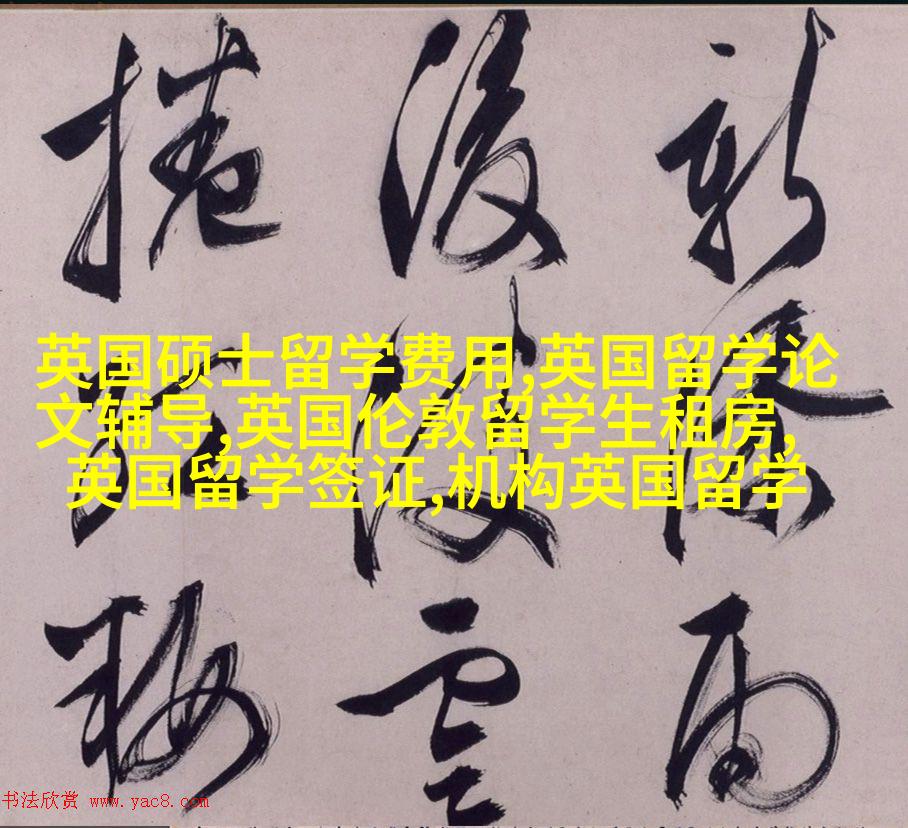 新添雨
後波雲
捲梅
英国硕士留学费用,英国留学论
文辅导,英国伦敦留学生租房,
英国留学签证,机构英国留学
书法欣赏 www.yac8.com